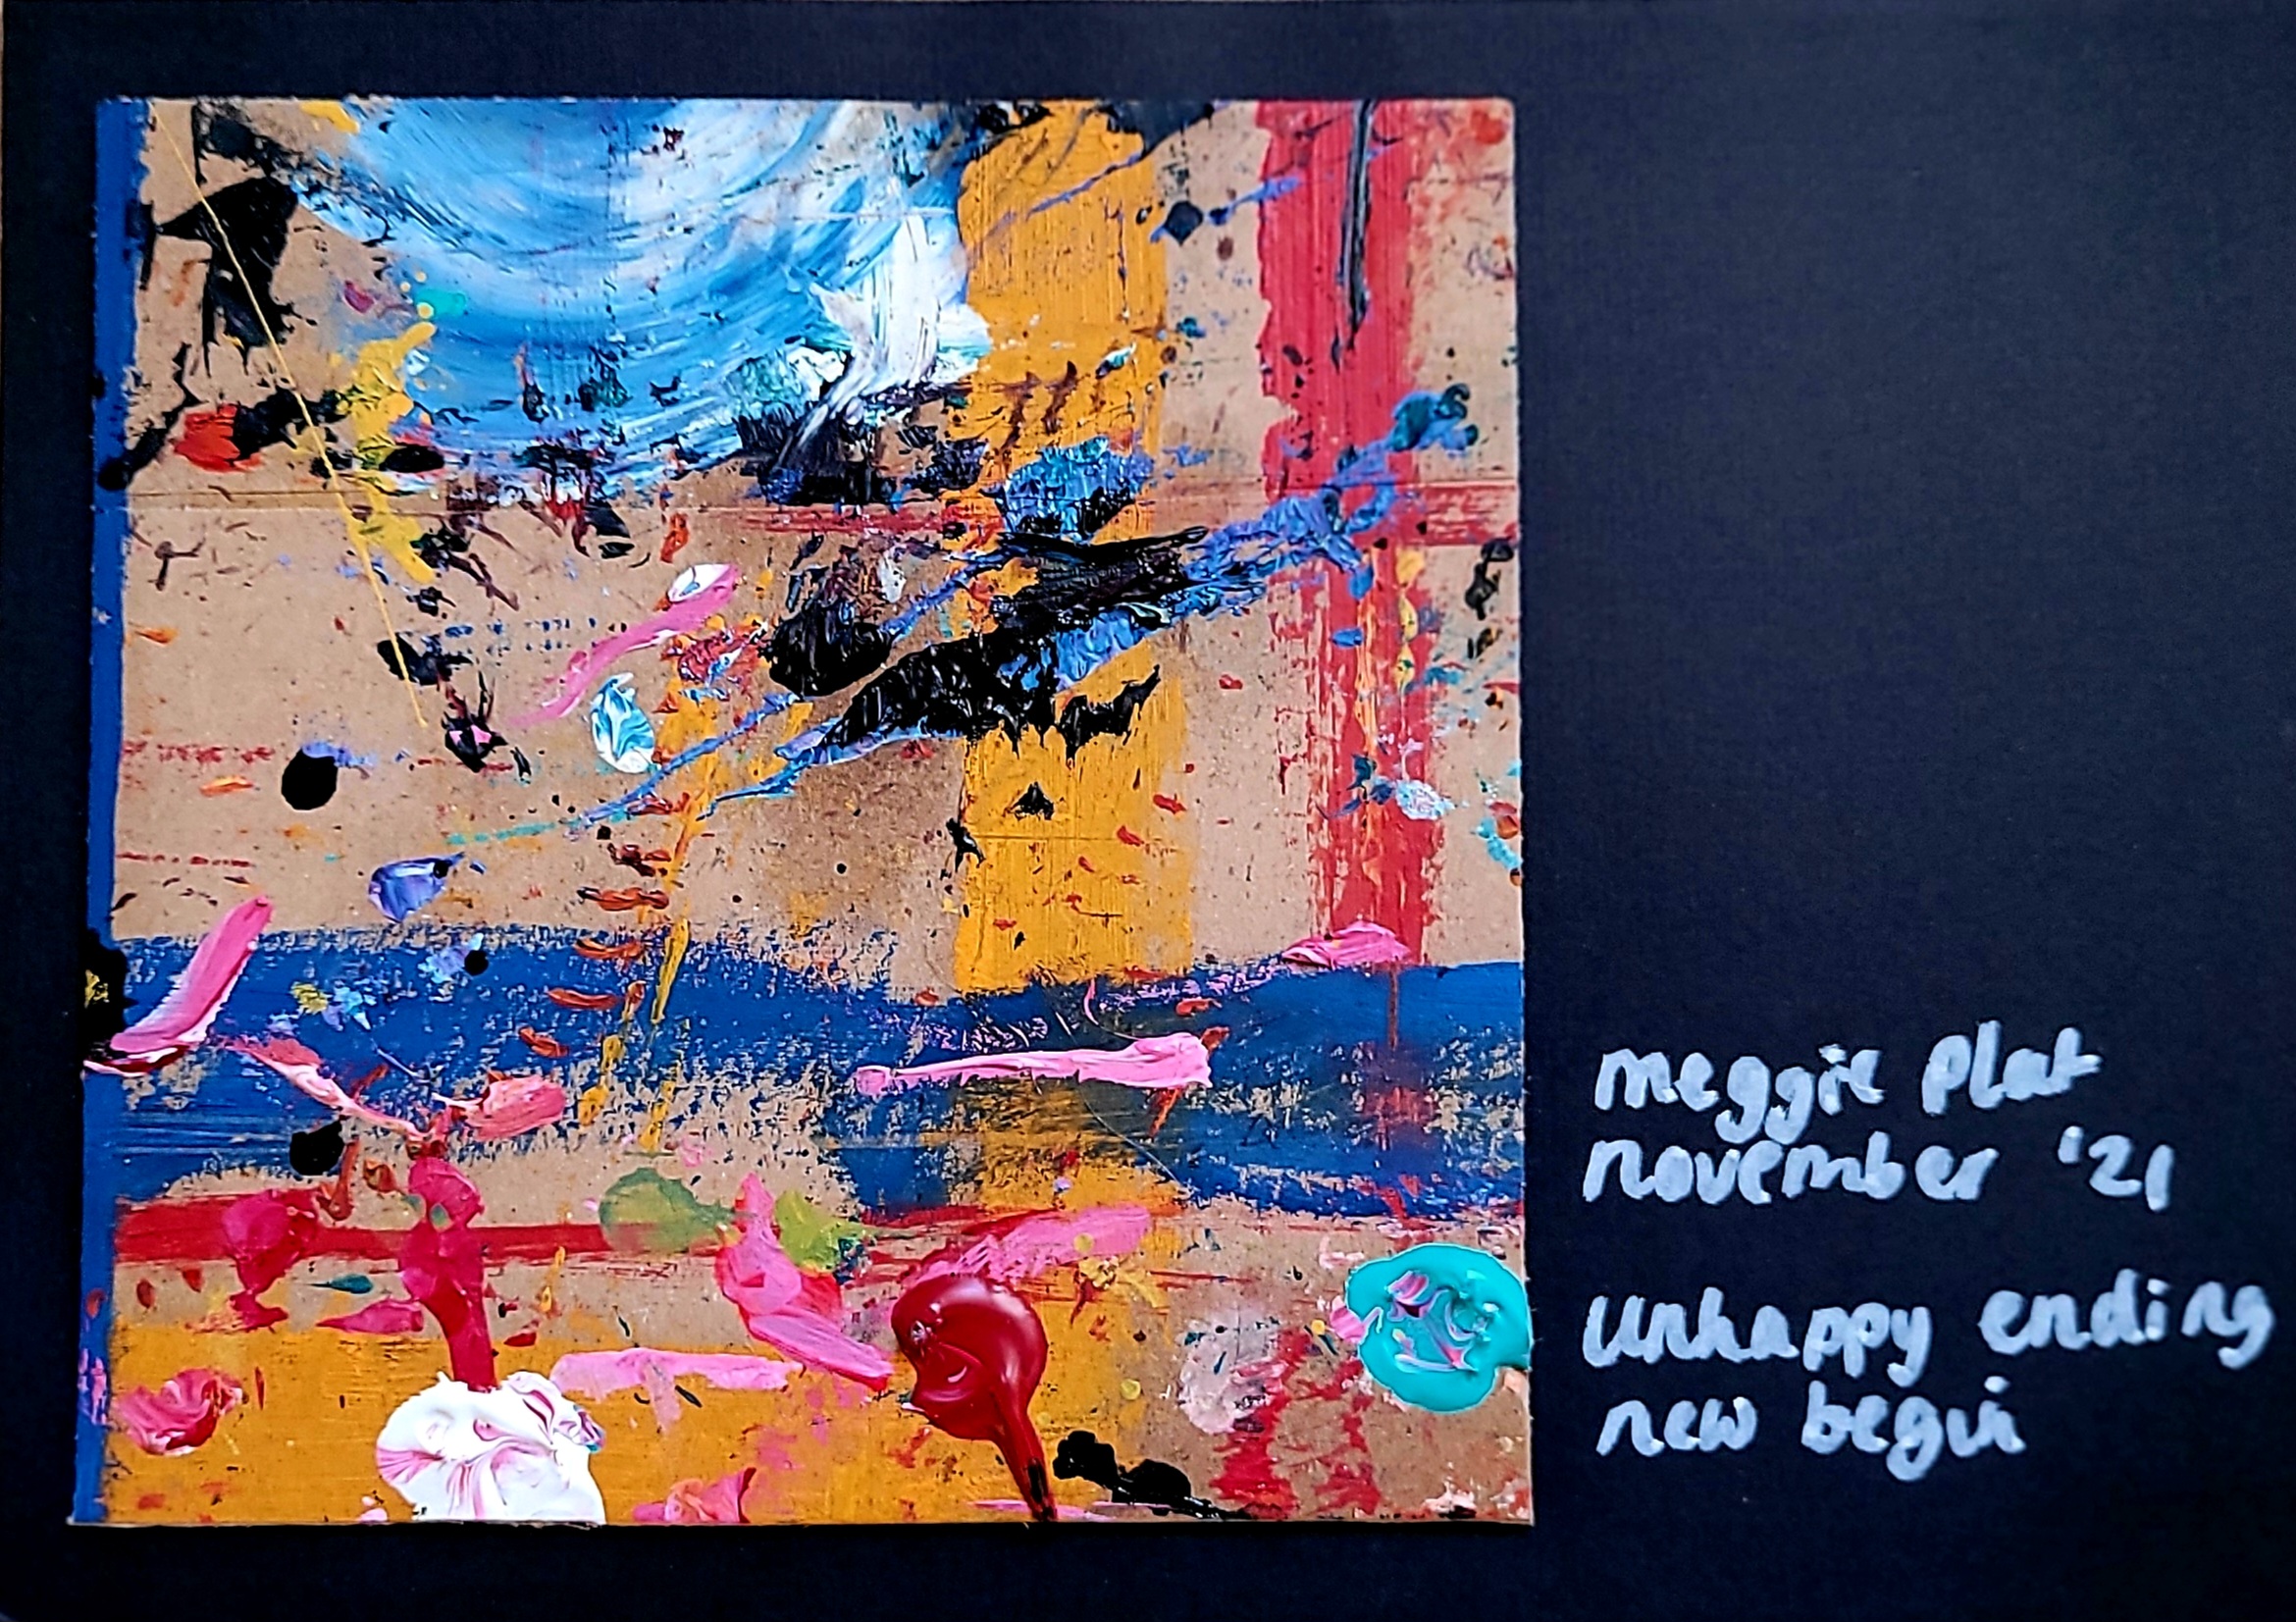 meggie Plat
november '21
Unhappy ending
new begin